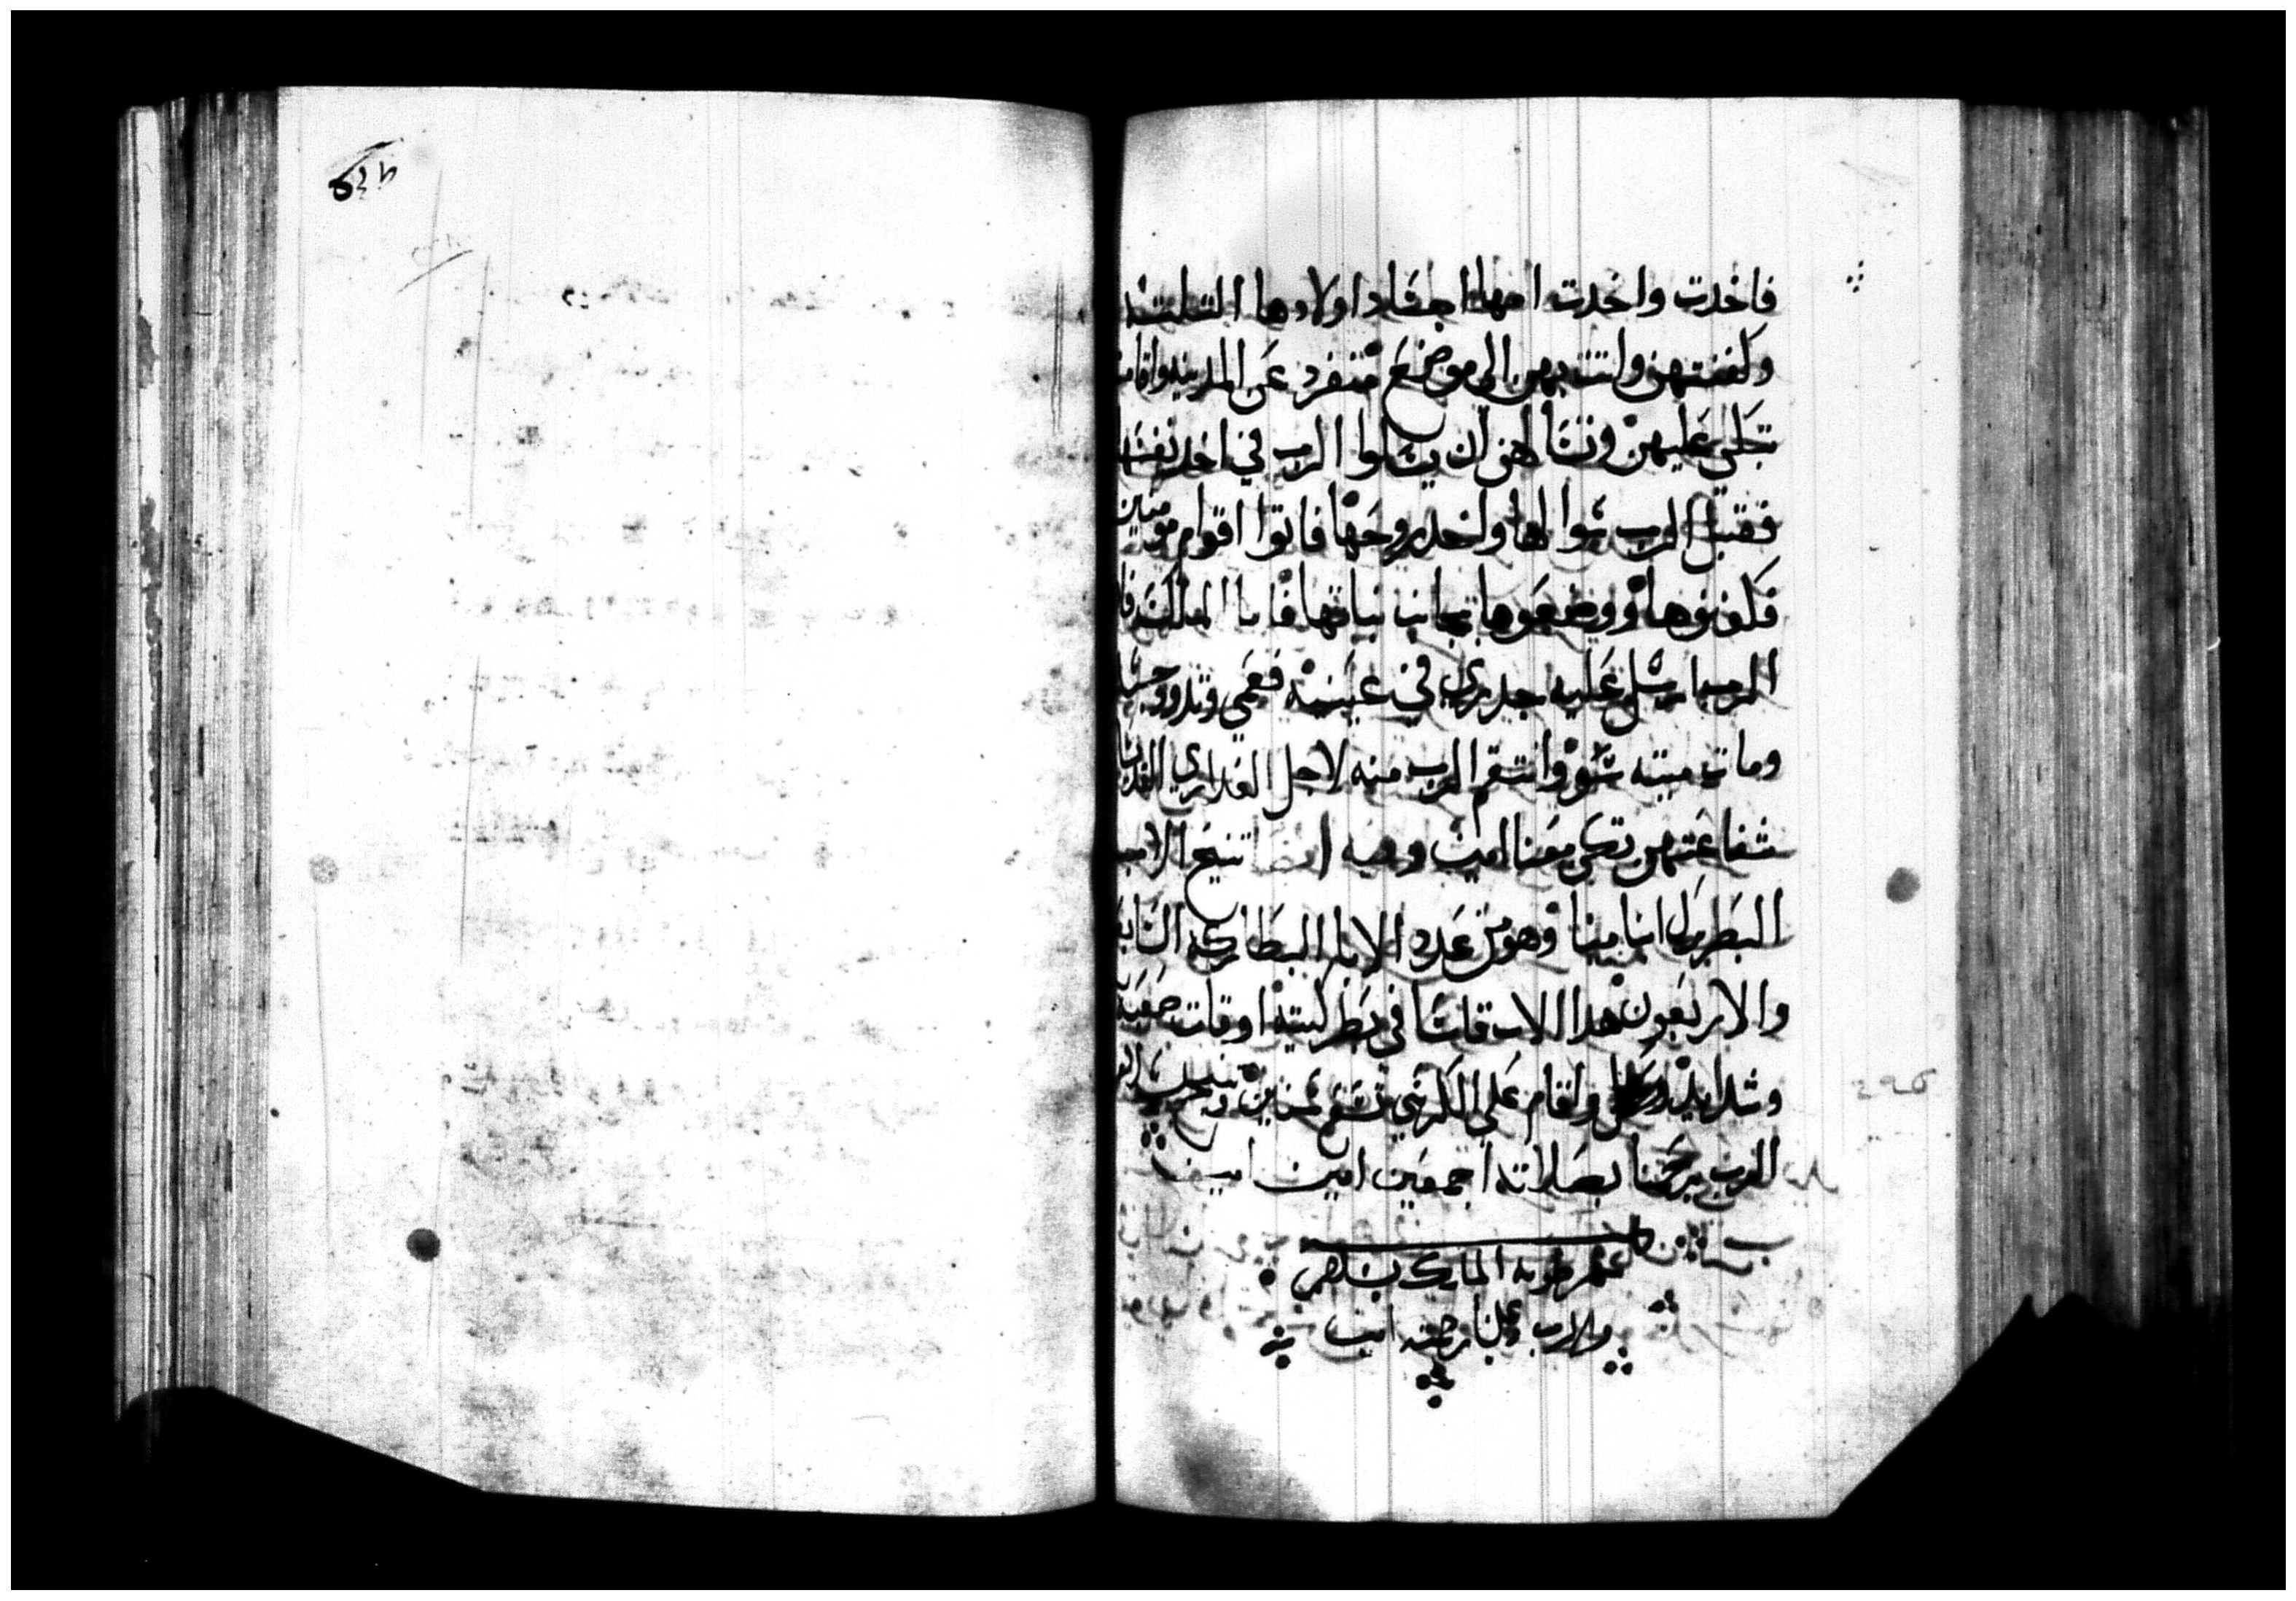 فاخدت واخدت امها اجساد اولادها التلته
وكفنتهن واتت بهن الى موضع منفرد عن المدينه واقامت
تبكي عليهن وتسالهن ان يسالوا الرب في اخد نفسها
فقبل الرب سوالها واخد روحها فاتوا اقوام مومنين
فكفنوها ووضعوها بجانب بناتها فاما الملك فان
الرب ارسل عليه جدري في عينيه فعمي وتدود جسده
ومات ميته سو وانتقم الرب منه لاجل العداري القديسات
شفاعتهن تكن معنا امين وفيه ايضا تنيح الاب
البطريرك انبا مينا وهو من عدد الابا البطاركه السابع
والاربعون هدا الاب قاسا في بطركيته اوقات صعبه
وشدايد واقام على الكرسي تسع سنين وتنيح
الرب يرحمنا بصلاته اجمعين امين امين
كمل شهر طوبه المبارك بسلام
والرب علينا رحمته امين